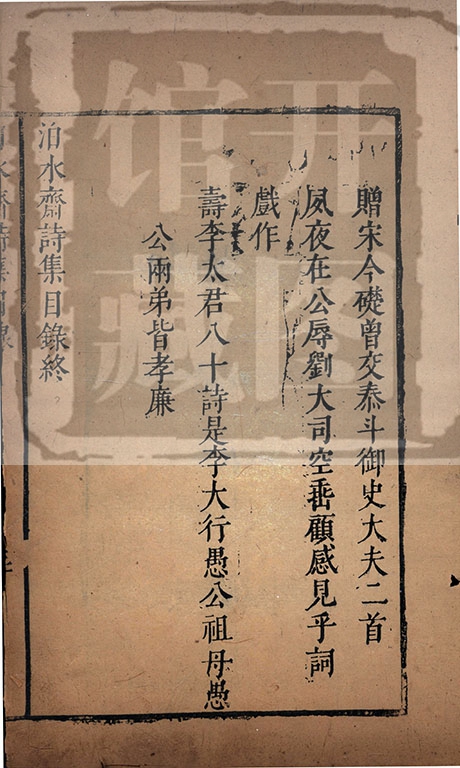 贈宋今礎曾交泰斗御史大夫二首
夙夜在公辱劉大司空垂顧感見乎詞
戲作
壽李太君八十詩是李大行愚公祖母愚
公兩弟皆孝廉
泊水齋詩集目錄終
开图
馆藏